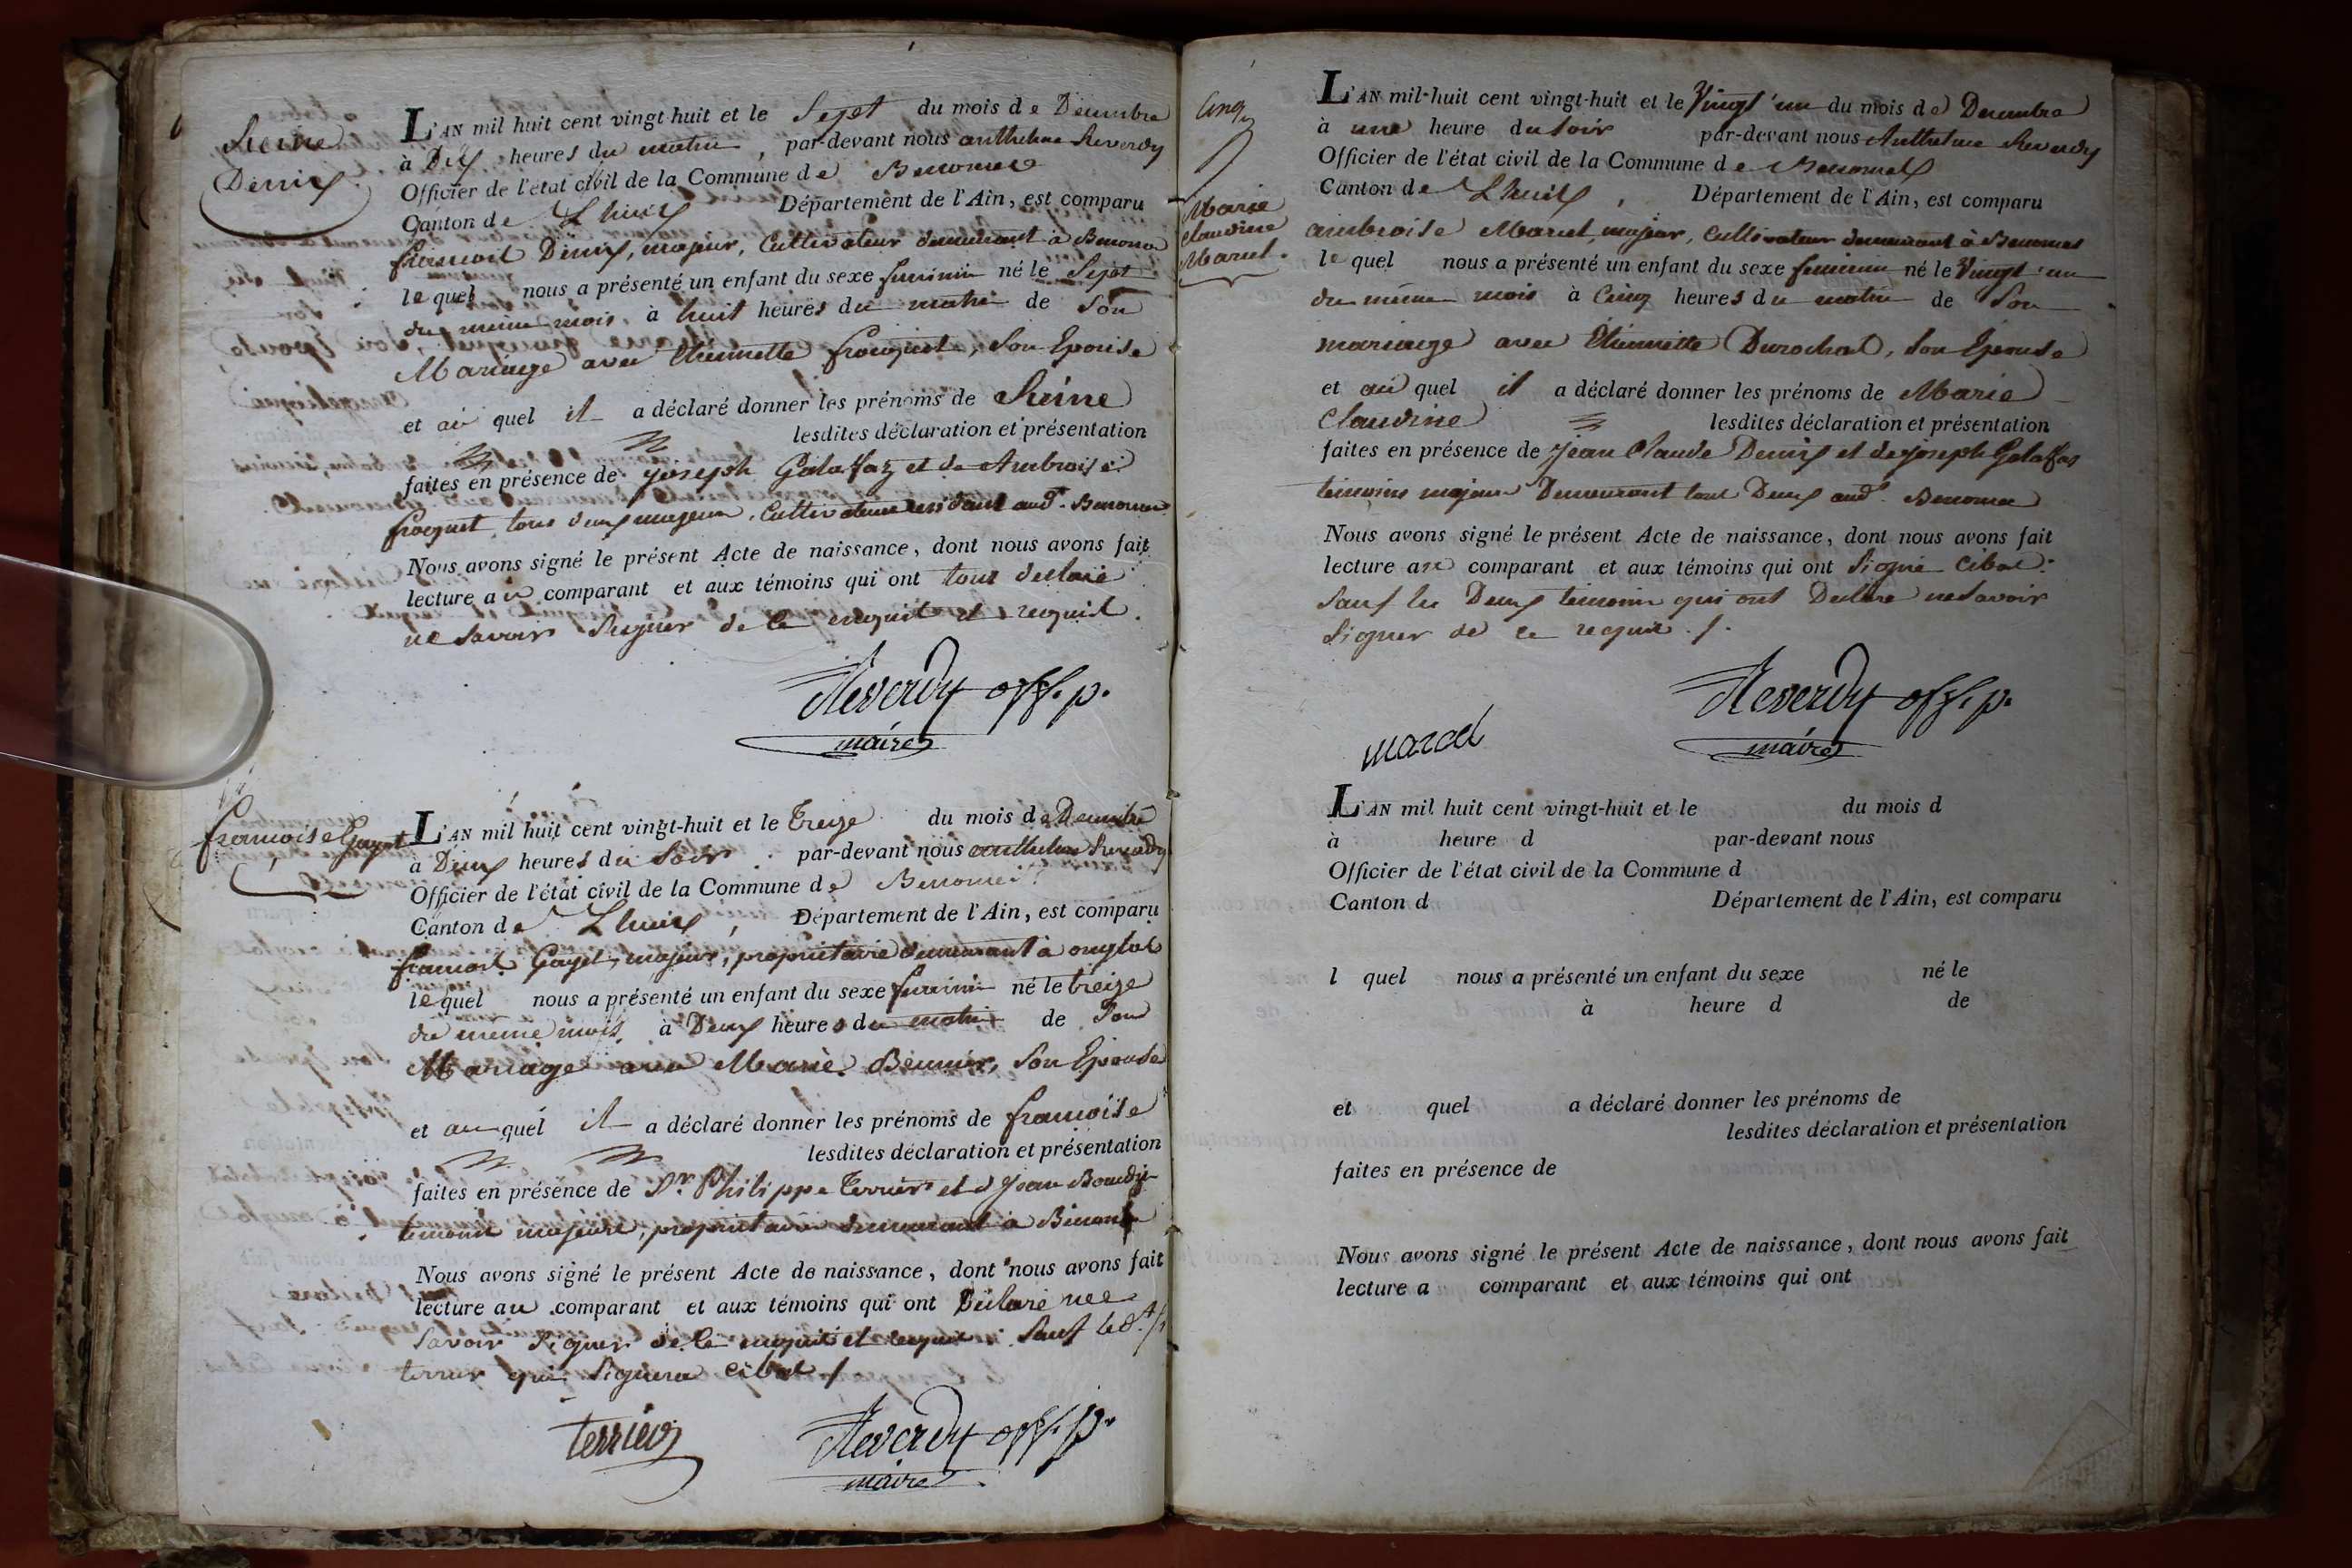 Reine
Denis
L'AN mil huit cent vingt-huit et le Sept du mois de Decembre
à Dix heures du matin, par-devant nous anthelme Reverdy
Officier de l'état civil de la Commune de Benonce
Canton de Lhuis Département de l'Ain, est comparu
francois Denis, majeur, Cultivateur demeurant à Benonce
lequel nous a présenté un enfant du sexe feminin né le Sept
du meme mois, à huit heures du matin de Son
Mariage avec Etiennette froquet, Son Epouse
et au quel il a déclaré donner les prénoms de Reine
lesdites déclaration et présentation
faites en présence de joseph Galaffaz et de Ambroise
froquet tous deux majeurs, Cultivateurs residant aud. Benonce
Nous avons signé le présent Acte de naissance, dont nous avons fait
lecture au comparant et aux témoins qui ont tous declaré
ne Savoir Signer de ce enquit et requit.
Reverdy off. p.
maire
francoise Gayet
L'AN mil huit cent vingt-huit et le treize du mois de Decembre
à Deux heures du Soir par-devant nous anthelme Reverdy
Officier de l'état civil de la Commune de Benonce
Canton de Lhuis, Département de l'Ain, est comparu
francois Gayet, majeur, proprietaire demeurant à onglas
lequel nous a présenté un enfant du sexe feminin né le treize
du meme mois, à Deux heures du matin de Son
Mariage avec Marie Bennier, Son Epouse
et au quel il a déclaré donner les prénoms de francoise
lesdites déclaration et présentation
faites en présence de Sr. Philippe Terrier et d jean
temoins majeurs, proprietaires demeurant à Benonce
Nous avons signé le présent Acte de naissance, dont nous avons fait
lecture au comparant et aux témoins qui ont Déclaré ne
Savoir Signer de ce enquit et requit. Sauf led.
terrier qui Signera
terrier
Reverdy off. p.
maire
Cinq
Marie
Claudine
Marcel.
L'AN mil-huit cent vingt-huit et le Vingt un du mois de Decembre
à une heure du Soir par-devant nous Anthelme Reverdy
Officier de l'état civil de la Commune de Benonce
Canton de Lhuis, Département de l'Ain, est comparu
ambroise Marcel, majeur, Cultivateur demeurant à Benonce
lequel nous a présenté un enfant du sexe feminin né le Vingt un
du meme mois à Cinq heures du matin de Son
mariage avec Etiennette Durochat, Son Epouse
et au quel il a déclaré donner les prénoms de Marie
Claudine lesdites déclaration et présentation
faites en présence de jean Claude Denis et de joseph Galaffas
temoins majeurs Demeurant tous Deux aud. Benonce
Nous avons signé le présent Acte de naissance, dont nous avons fait
lecture au comparant et aux témoins qui ont Signé
Sauf les Deux temoins qui ont Declaré ne Savoir
Signer de ce requit.
marcel
Reverdy off. p.
maire
L'AN mil huit cent vingt-huit et le du mois d
à heure d par-devant nous
Officier de l'état civil de la Commune d
Canton d Département de l'Ain, est comparu
l quel nous a présenté un enfant du sexe né le
à heure d de
et quel a déclaré donner les prénoms de
lesdites déclaration et présentation
faites en présence de
Nous avons signé le présent Acte de naissance, dont nous avons fait
lecture a comparant et aux témoins qui ont